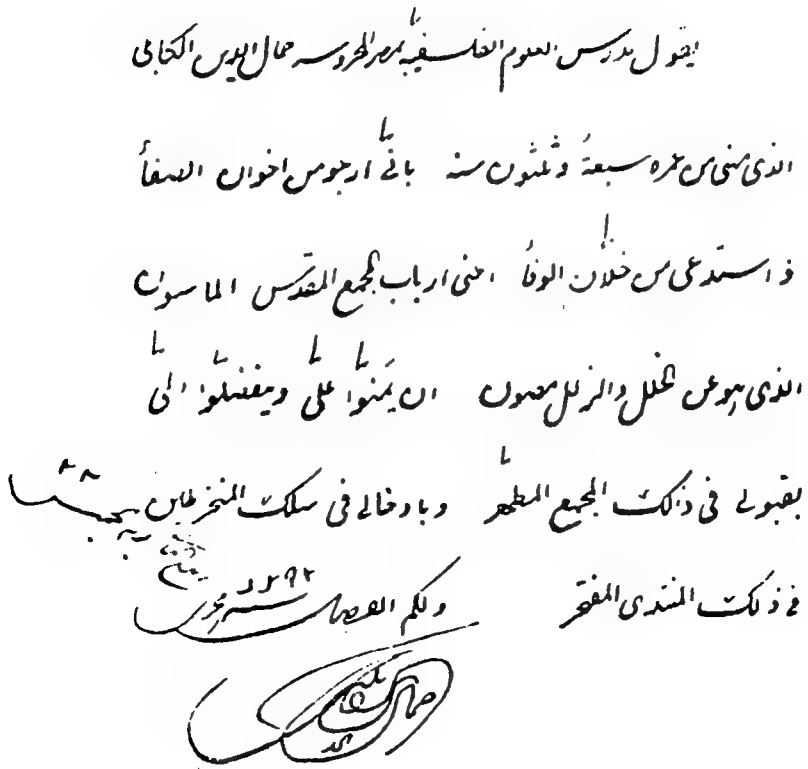 يقول مدرس العلوم الفلسفية بمصر المحروسه جمال الدين الكابلى
الذى مضى من عمره سبعة وثلثون سنه بانى ارجو من اخوان الصفأ
و استدعى من خلان الوفأ اعنى ارباب المجمع المقدس الماسون
الذى هو عن الخلل والزلل مصون ان يمنوا على ويتفضلوا الى
بقبولى فى ذلك المجمع المطهر وبادخالى فى سلك المنخرطين
فى ذلك المنتدى المفتخر ولكم الفضل
١٢٩٢
جمال الدين